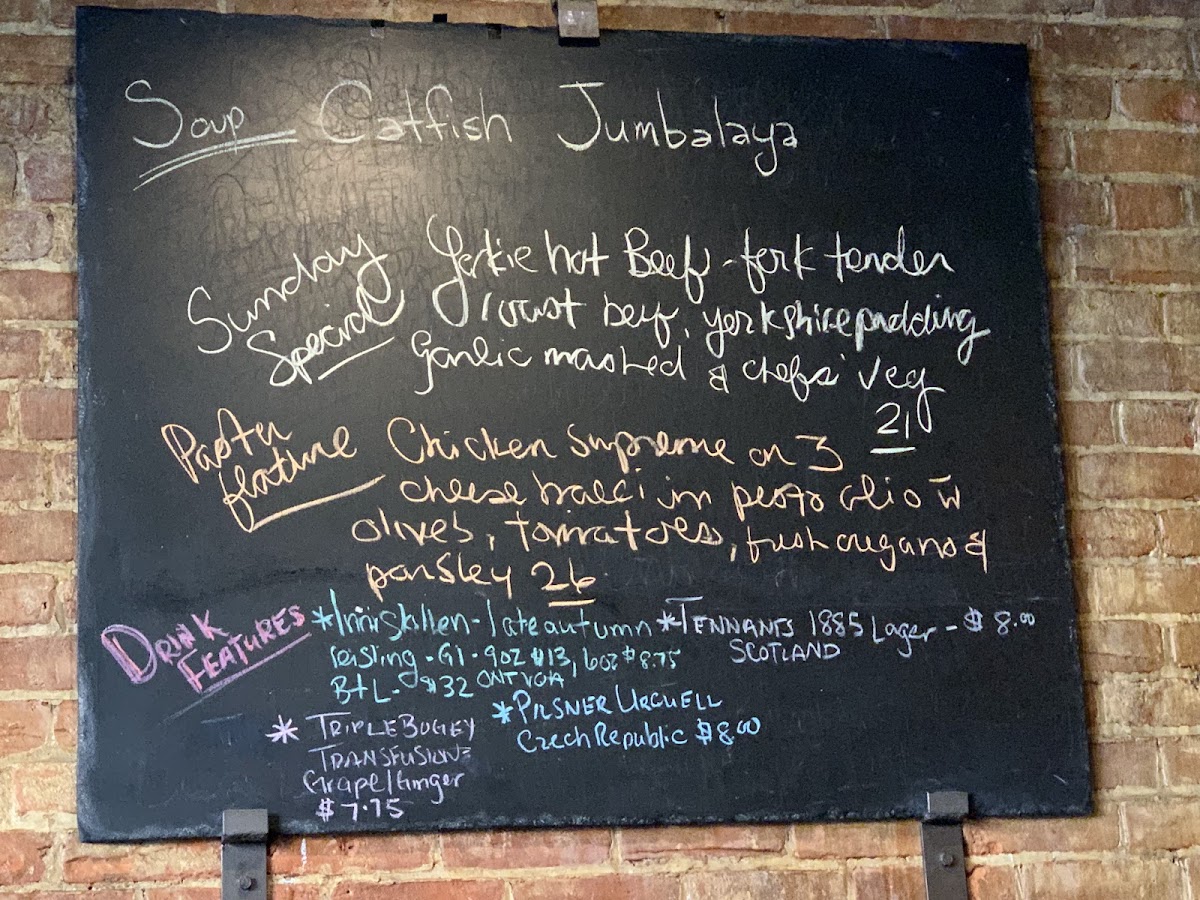 Soup Catfish Jumbalaya
Sunday Special
Yorkie hot Beef - fork tender
roast beef, yorkshire pudding
Garlic mashed & chefs' Veg
21
Pasta feature
Chicken Supreme on 3
cheese in pesto olio w
olives, tomatoes, fresh oregano &
parsley 26
DRINK FEATURES
*Inniskillen - late autumn
reisling - Gl - 9oz $13, 6oz $8.75
BTL - $32 ONT VQA
*TENNANTS 1885 Lager - $8.00
SCOTLAND
*PILSNER URQUELL
Czech Republic $8.00
* TRIPLE BOGEY
TRANSFUSION
Grape/Ginger
$7.75